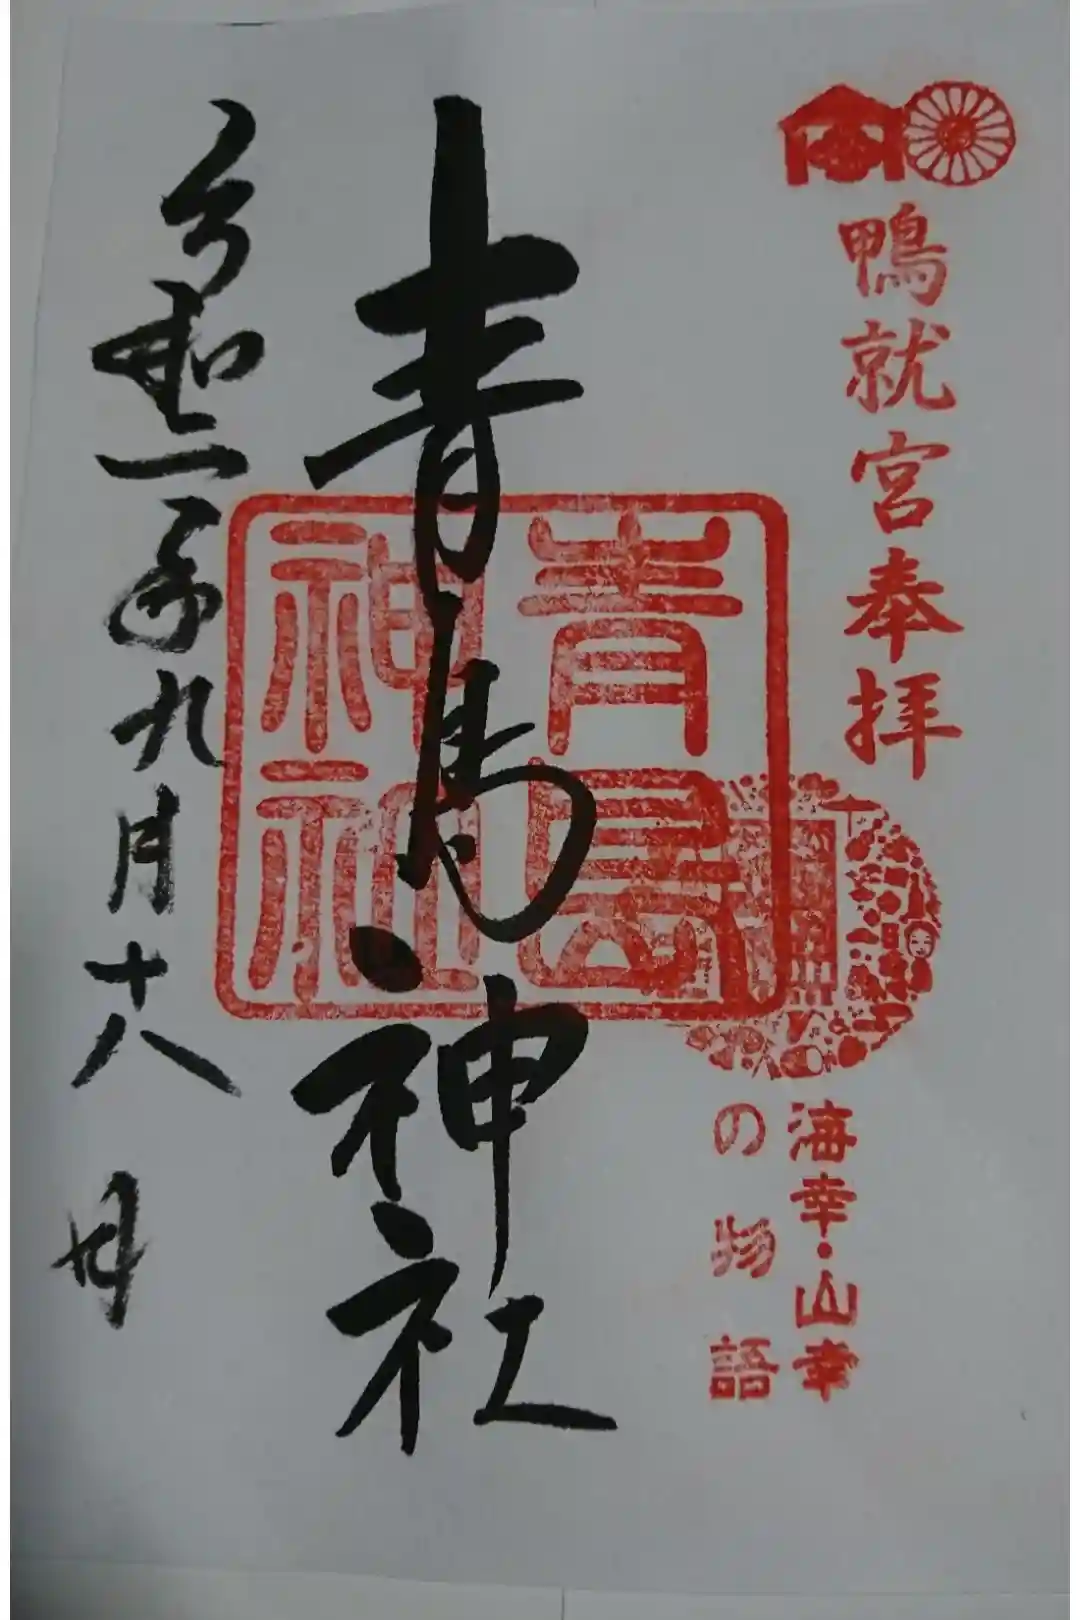 鴨就宮奉拝
海幸・山幸
の物語
青島
神社
青島神社
令和二年九月十八日